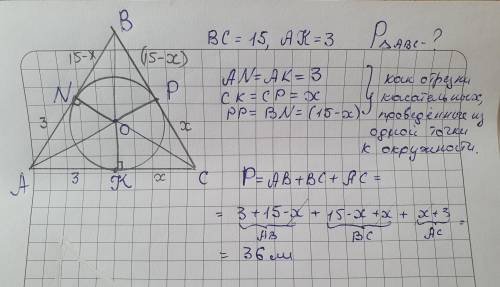 B
15-x
(15-x)
N
P
3
x
O
A
3
K
x
C
BC = 15, AK = 3 P△ABC - ?
AN = AK = 3
CK = CP = x
PP = BN = (15-x)
как отрезки
касательных,
проведённых из
одной точки
к окружности.
P = AB + BC + AC =
= 3+15-x + 15-x+x + x+3 =
AB BC AC
= 36 м